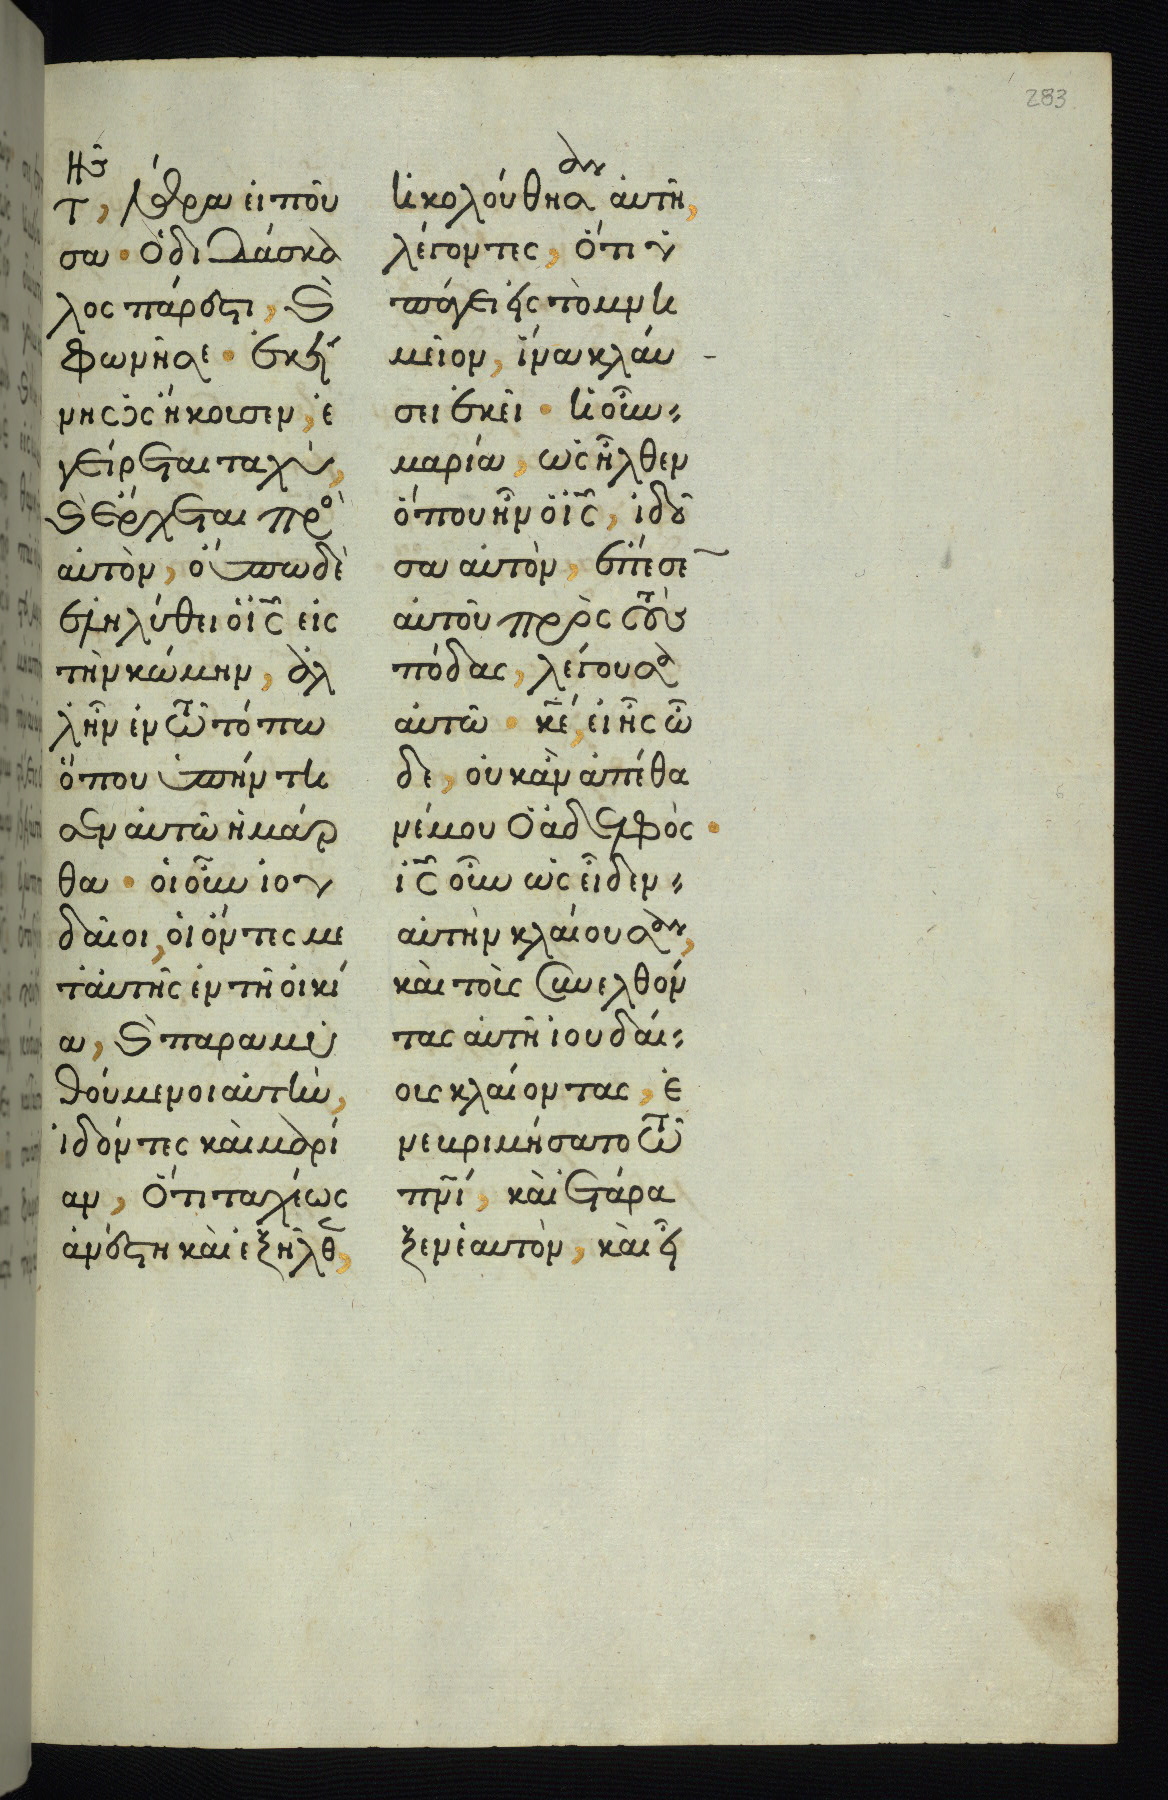 283
τῆς, λάθρα εἰποῦ
σα · ὁ διδάσκα
λος πάρεστι, καὶ
φωνῆ σε · ἐκεί
νη ὡς ἤκουσεν, ἐ
γείρεται ταχὺ,
καὶ ἔρχεται πρὸς
αὐτὸν, οὔπω δὲ
ἐληλύθει ὁ ις εἰς
τὴν κώμην, ἀλ
λ ἦν ἐν τῶ τόπω
ὅπου ὑπήντη
σεν αὐτῶ ἡ μάρ
θα · οἱ οὖν ἰου
δαῖοι, οἱ ὄντες με
τ αὐτῆς ἐν τῆ οἰκί
α, καὶ παραμυ
θούμενοι αὐτὴν,
ἰδόντες καὶ μαρί
αν, ὅτι ταχέως
ἀνέστη καὶ ἐξῆλθεν,
ἠκολούθησαν αὐτῆ,
λέγοντες, ὅτι ὑ
πάγει εἰς τὸ μνη
μεῖον, ἵνα κλαύ
σει ἐκεῖ · ἡ οὖν
μαρία, ὡς ἦλθεν
ὅπου ἦν ὁ ις, ἰδοῦ
σα αὐτὸν, ἔπεσεν
αὐτοῦ πρὸς τοὺς
πόδας, λέγουσα
αὐτῶ · κε, εἰ ἦς ὧ
δε, οὐκ ἂν ἀπέθα
νέ μου ὁ ἀδελφὸς ·
ις οὖν ὡς εἶδεν
αὐτὴν κλαίουσαν,
καὶ τοὶς συνελθόν
τας αὐτῆ ἰουδαί
οις κλαίοντας, ἐ
νεβριμήσατο τῶ
πνι, καὶ ἐτάρα
ξεν ἑαυτὸν, καὶ εἶ